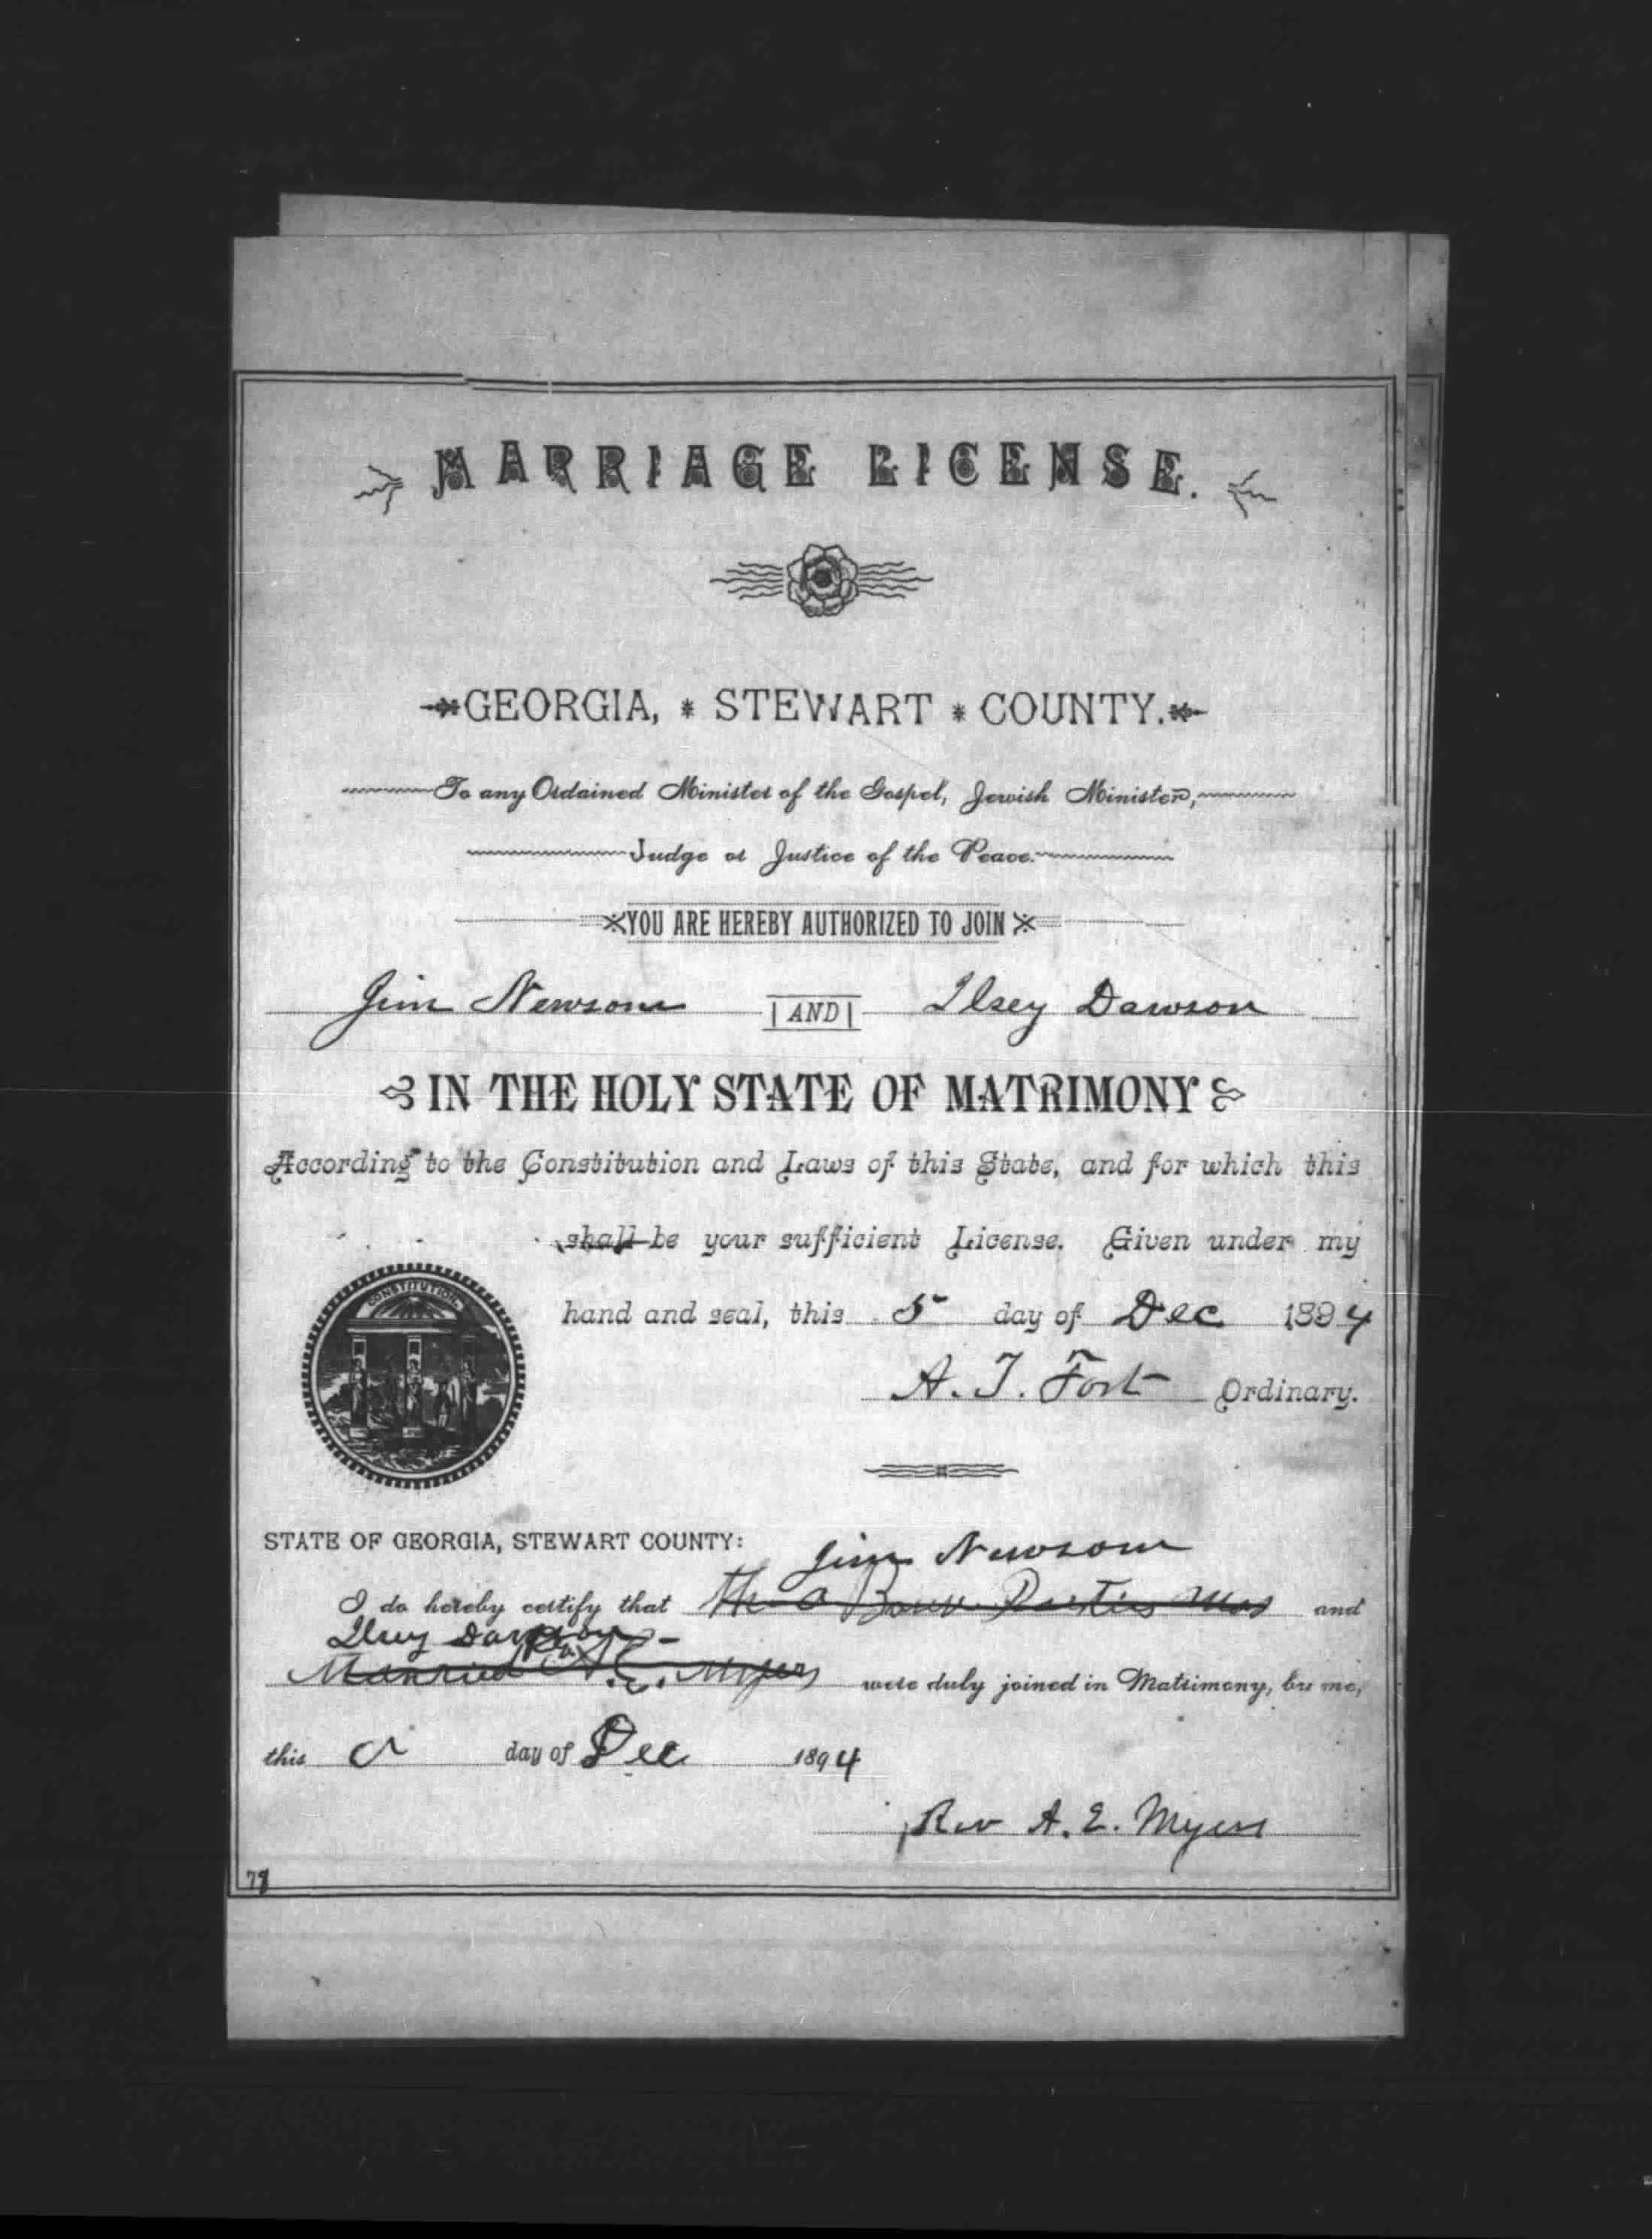 MARRIAGE LICENSE.
GEORGIA, * STEWART * COUNTY.
To any Ordained Minister of the Gospel, Jewish Minister,
Judge or Justice of the Peace.
YOU ARE HEREBY AUTHORIZED TO JOIN
Jim Newsom AND Ilsey Dawson
IN THE HOLY STATE OF MATRIMONY
According to the Constitution and Laws of this State, and for which this
shall be your sufficient License. Given under my
CONSTITUTION
hand and seal, this 5 day of Dec 1894
A. T. Fort Ordinary.
STATE OF GEORGIA, STEWART COUNTY:
Jim Newsom
I do hereby certify that The a Bove Parties Was and
Ilsey Dawson
Married A. E. Myers were duly joined in Matrimony, by me,
this day of Dec 1894
Rev A. E. Myers